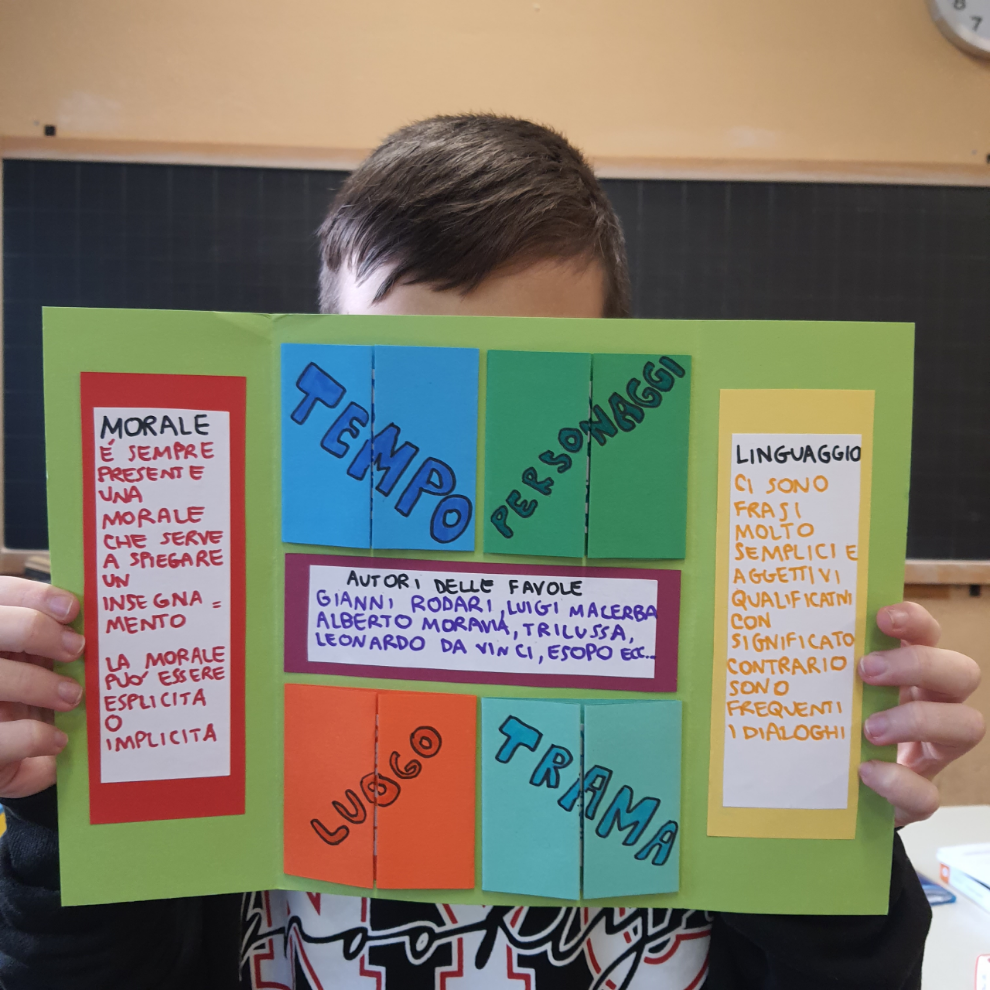 MORALE
É SEMPRE
PRESENTE
UNA
MORALE
CHE SERVE
A SPIEGARE
UN
INSEGNA =
MENTO
LA MORALE
PUO' ESSERE
ESPLICITA
O
IMPLICITA
TEMPO
PERSONAGGI
AUTORI DELLE FAVOLE
GIANNI RODARI, LUIGI MALERBA
ALBERTO MORAVIA, TRILUSSA,
LEONARDO DA VINCI, ESOPO ECC...
LUOGO
TRAMA
LINGUAGGIO
CI SONO
FRASI
MOLTO
SEMPLICI E
AGGETTIVI
QUALIFICATIVI
CON
SIGNIFICATO
CONTRARIO
SONO
FREQUENTI
I DIALOGHI
Brooklyn
8
7